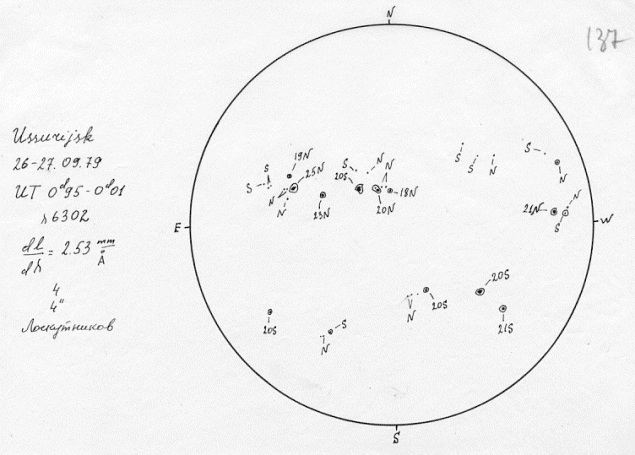 N
137
Ussurijsk
26-27.09.79
UT 0ᵈ95-0ᵈ01
λ6302
dl/dλ = 2.53 mm/Å
4
4"
Лоскутников
E
W
S
19N
25N
S
S
N
N
23N
S
20S
N
N
20N
18N
S
S
N
S
N
21N
N
S
20S
S
N
N
20S
20S
21S